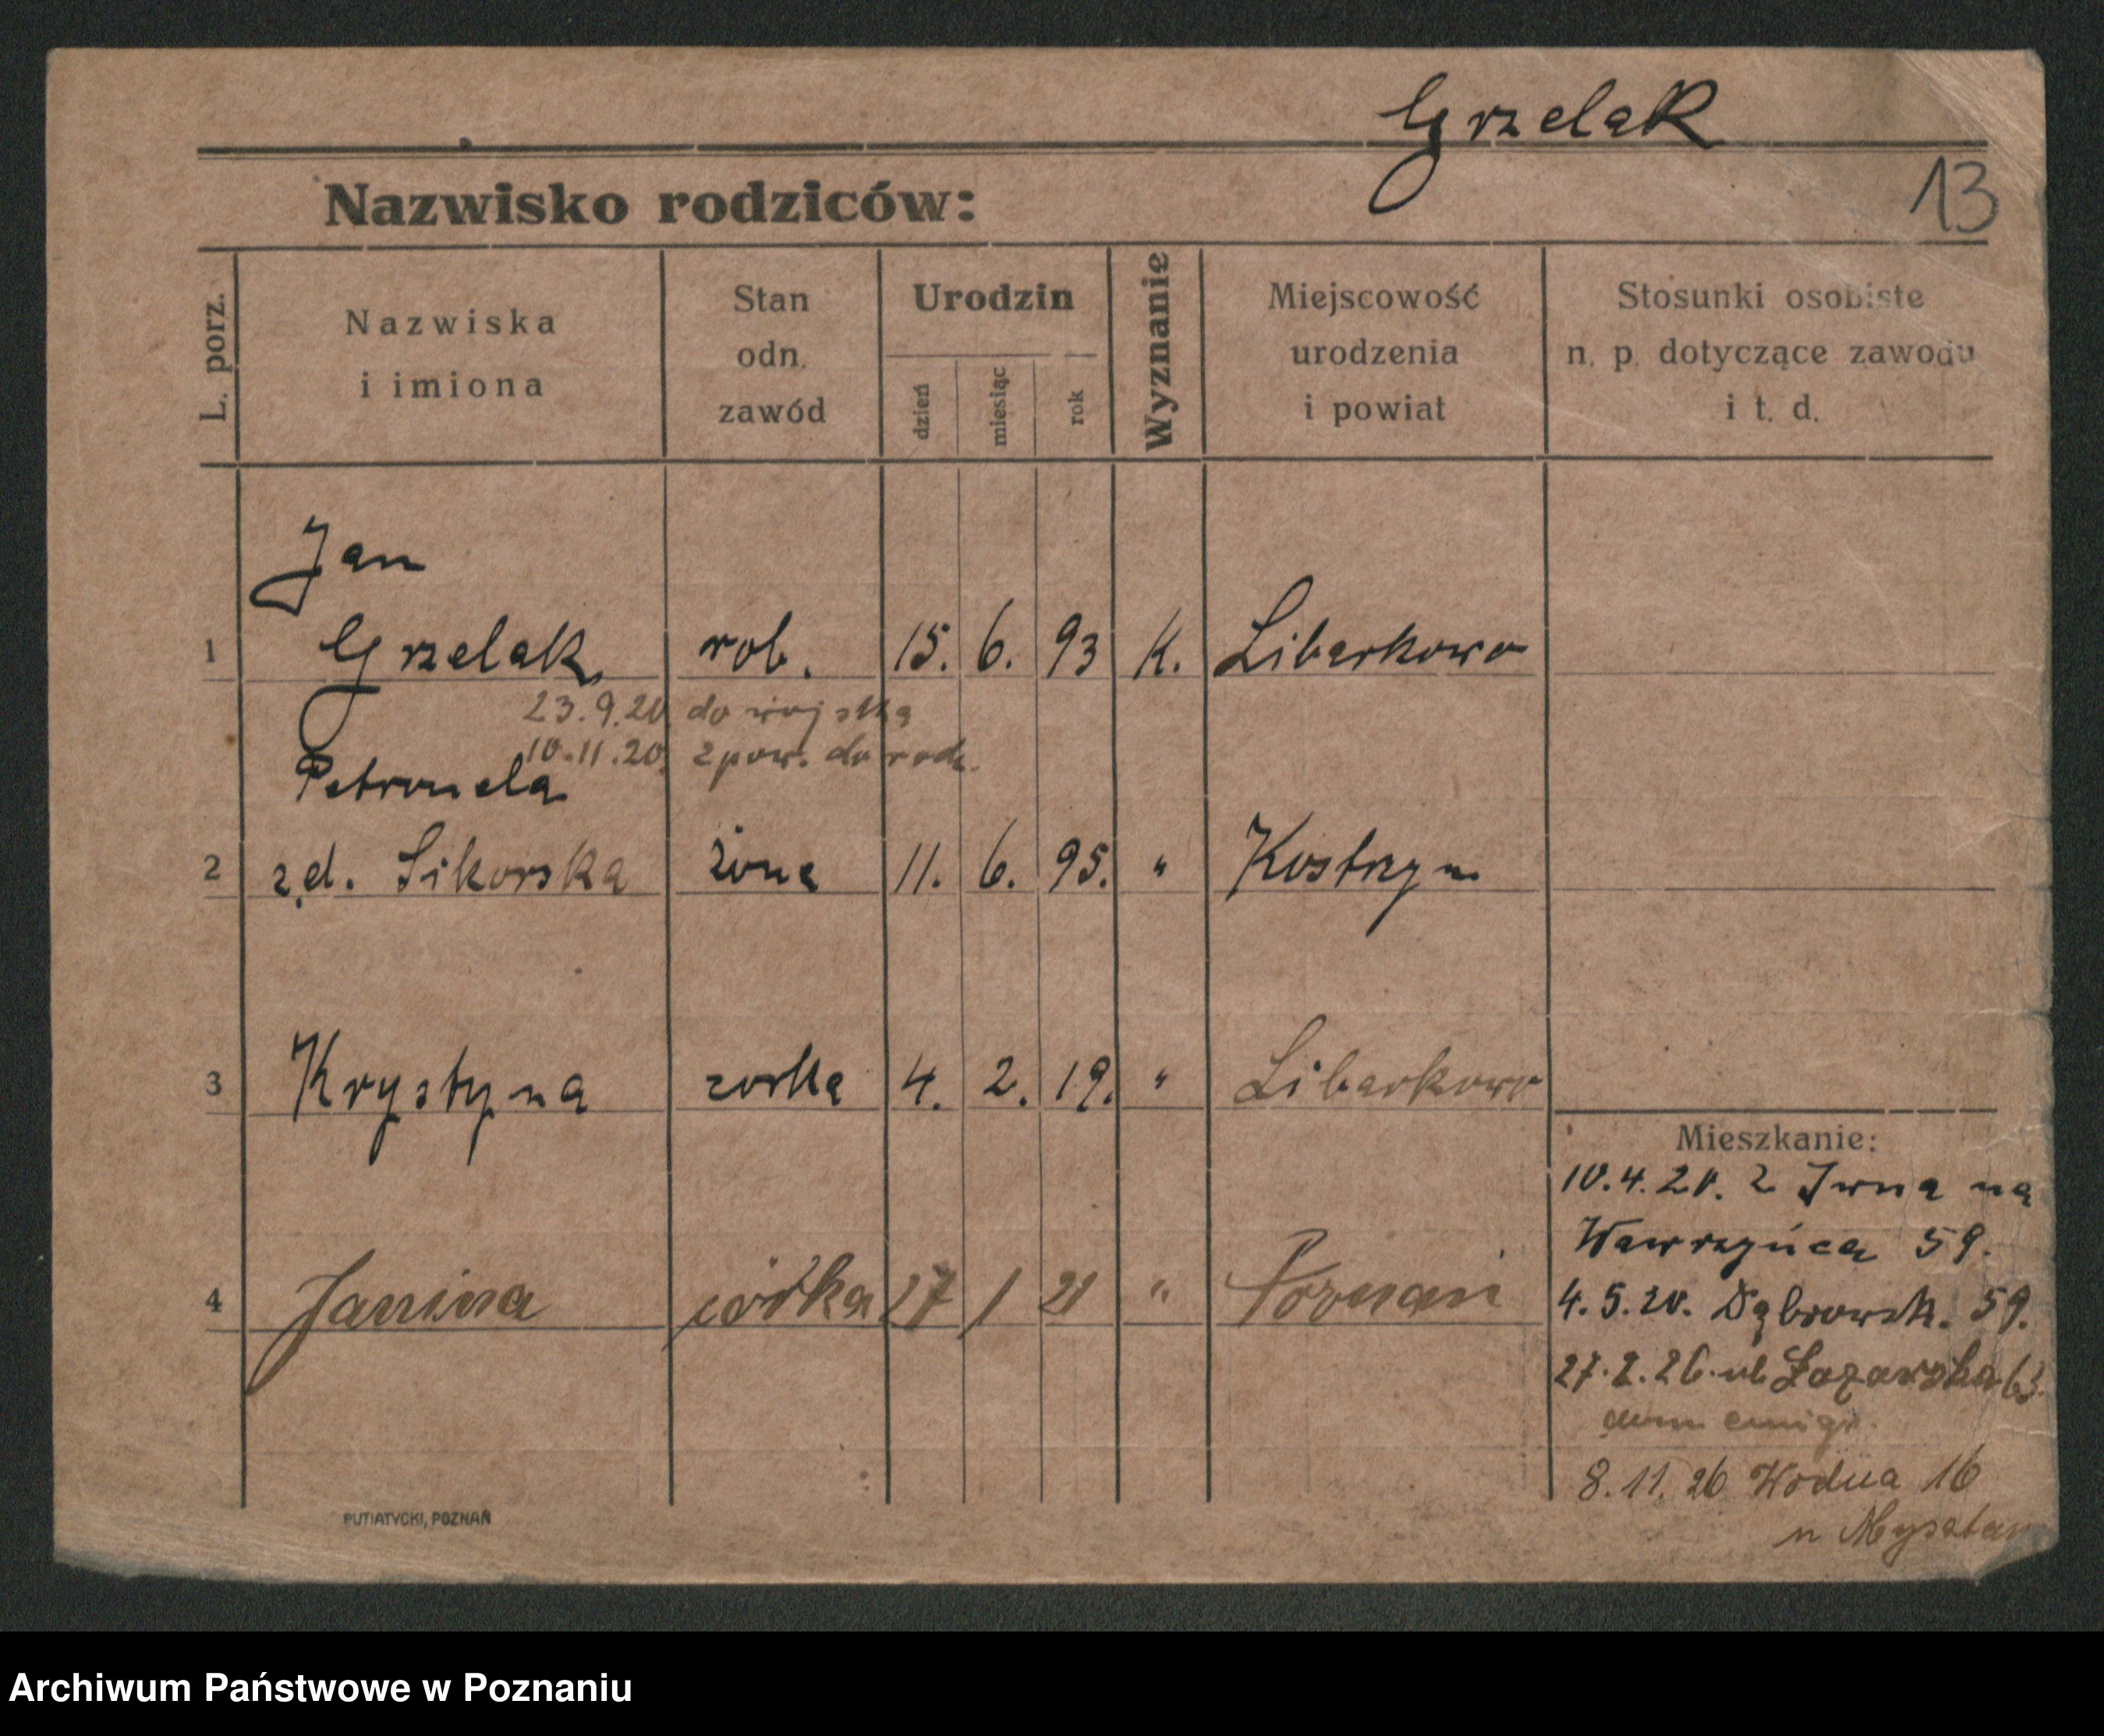 Grzelak
13
Nazwisko rodziców:
L. porz.
Nazwiska
i imiona
Stan
odn.
zawód
Urodzin
dzień
miesiąc
rok
Wyznanie
Miejscowość
urodzenia
i powiat
Stosunki osobiste
n. p. dotyczące zawodu
i t. d.
Jan
1 Grzelak rob. 15. 6. 93 K. Libarkowo
23.9.20 do wojska
10.11.20 z pow. do rodz.
Petronela
2 z d. Sikorska żona 11. 6. 95. " Kostrzyn
3 Krystyna corka 4. 2. 19. " Libarkowo
Mieszkanie:
10.4.20. z Iwna na
Wawrzyńca 59.
4 Janina córka 27 1 21 " Poznań
4.5.20. Dąbrowsk. 59.
27.2.26. ul Łazarska 63.
dom emigr.
8.11.26 Wodna 16
PUTIATYCKI, POZNAŃ
Archiwum Państwowe w Poznaniu